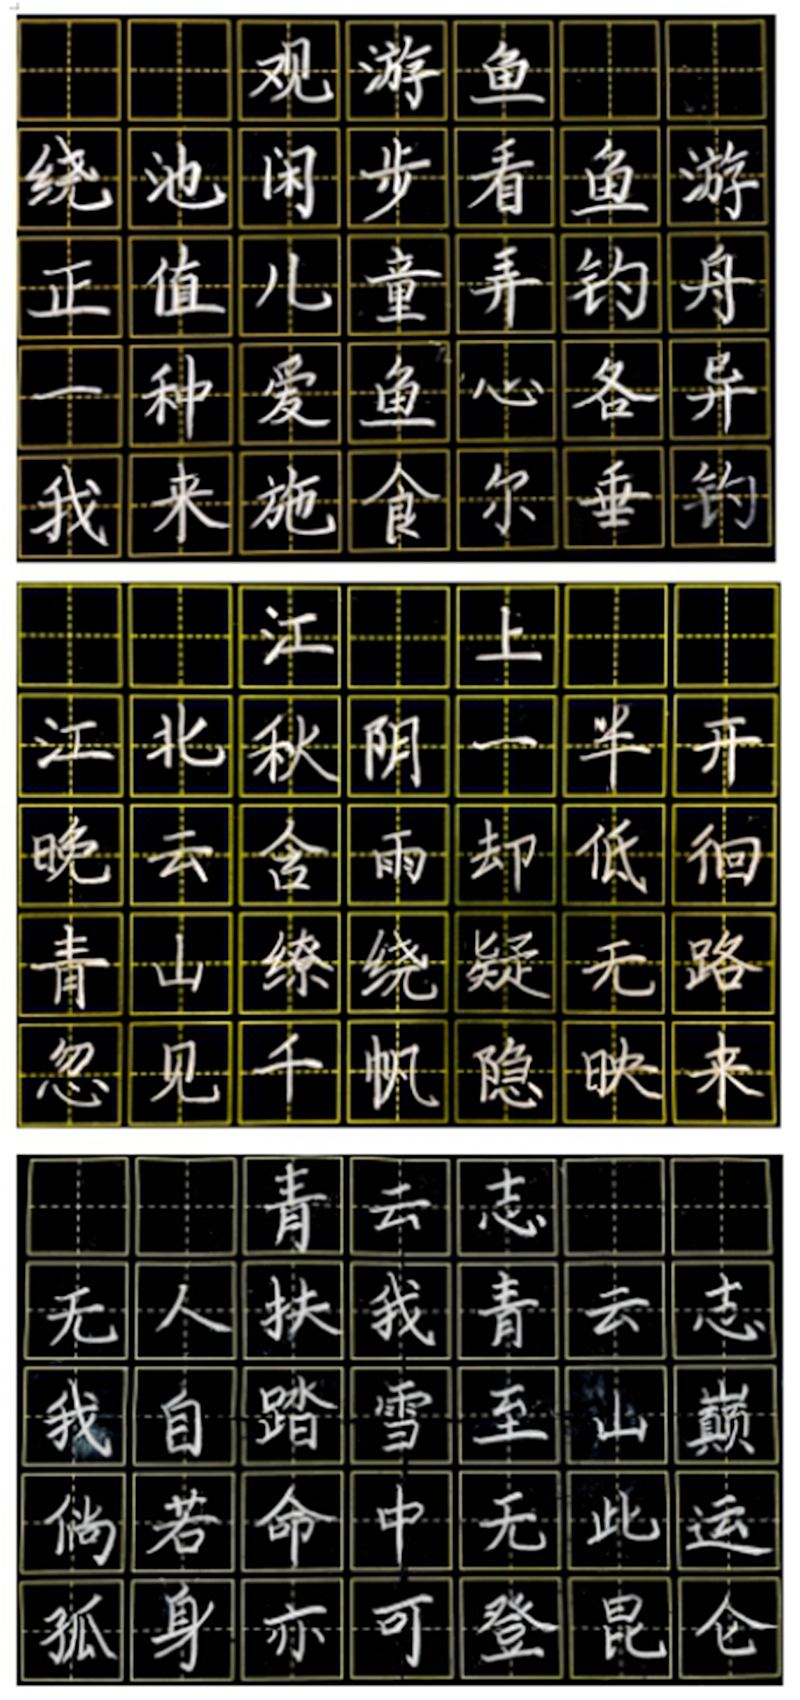 观游鱼
绕池闲步看鱼游
正值儿童弄钓舟
一种爱鱼心各异
我来施食尔垂钓
江上
江北秋阴一半开
晚云含雨却低徊
青山缭绕疑无路
忽见千帆隐映来
青云志
无人扶我青云志
我自踏雪至山巅
倘若命中无此运
孤身亦可登昆仑